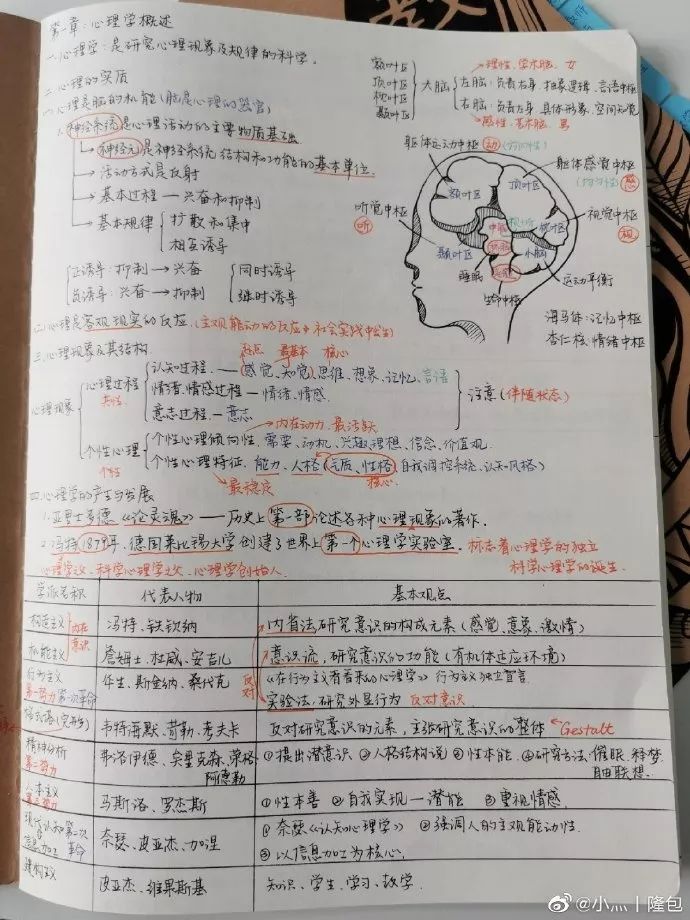 第一章：心理学概述
一、心理学：是研究心理现象及规律的科学。
二、心理的实质
(一)心理是脑的机能(脑是心理的器官)
1.神经系统是心理活动的主要物质基础
神经元是神经系统结构和功能的基本单位.
活动方式是反射
基本过程—兴奋和抑制
基本规律 扩散和集中
相互诱导
正诱导：抑制→兴奋 同时诱导
负诱导：兴奋→抑制 继时诱导
额叶区
顶叶区
枕叶区
颞叶区
大脑
理性、学术脑、女
左脑：负责右身、抽象逻辑、言语中枢
右脑：负责左身、具体形象、空间知觉
感性、艺术脑、男
躯体运动中枢 动
躯体感觉中枢
感
听觉中枢
听
视觉中枢
视
额叶区
顶叶区
枕叶区
颞叶区
小脑
睡眠
生命中枢
运动平衡
海马体：记忆中枢
杏仁核：情绪中枢
(二)心理是客观现实的反应(主观能动的反应，社会实践中产生)
三、心理现象及其结构
起点 最基本 核心
心理现象
心理过程
共性
认知过程.—(感觉、知觉)、思维、想象、记忆、言语
情绪、情感过程—情绪、情感.
意志过程—意志
注意(伴随状态)
内在动力、最活跃
个性心理
个性
个性心理倾向性、需要、动机、兴趣、理想、信念、价值观.
个性心理特征、能力、人格(气质、性格、自我调控系统、认知风格)
最稳定
核心
四、心理学的产生与发展
1.亚里士多德《论灵魂》——历史上第一部论述各种心理现象的著作.
2.冯特1879年、德国莱比锡大学创建了世界上第一个心理学实验室。标志着心理学的独立
心理学父、科学心理学之父、心理学创始人.
科学心理学的诞生.
学派名称 代表人物 基本观点
构造主义 冯特、铁钦纳 内省法研究意识的构成元素(感觉、意象、激情)
内在意识
机能主义 詹姆士、杜威、安吉尔 意识流，研究意识的功能(有机体适应环境)
行为主义 华生、斯金纳、桑代克 反对 《在行为主义者看来的心理学》 行为主义独立宣言
第一势力 第一次革命 实验法：研究外显行为 反对意识.
格式塔(完形) 韦特海默、苛勒、考夫卡 反对研究意识的元素，主张研究意识的整体 Gestalt
精神分析 弗洛伊德、埃里克森、荣格 ①提出潜意识 ②人格结构说 ③性本能、④研究方法：催眠、释梦、
第二势力 阿德勒 自由联想.
人本主义 马斯洛、罗杰斯 ①性本善 ②自我实现—潜能 ③重视情感.
第三势力
现代认知 第二次 奈瑟、皮亚杰、加涅 ①奈瑟《认知心理学》 ②强调人的主观能动性.
信息加工 革命 ③以信息加工为核心.
建构主义 皮亚杰、维果斯基 知识、学生、学习、教学.
@小灬丨隆包